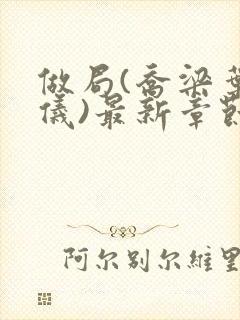 做局(乔梁叶
儀)最新章節
阿尔別尔維里